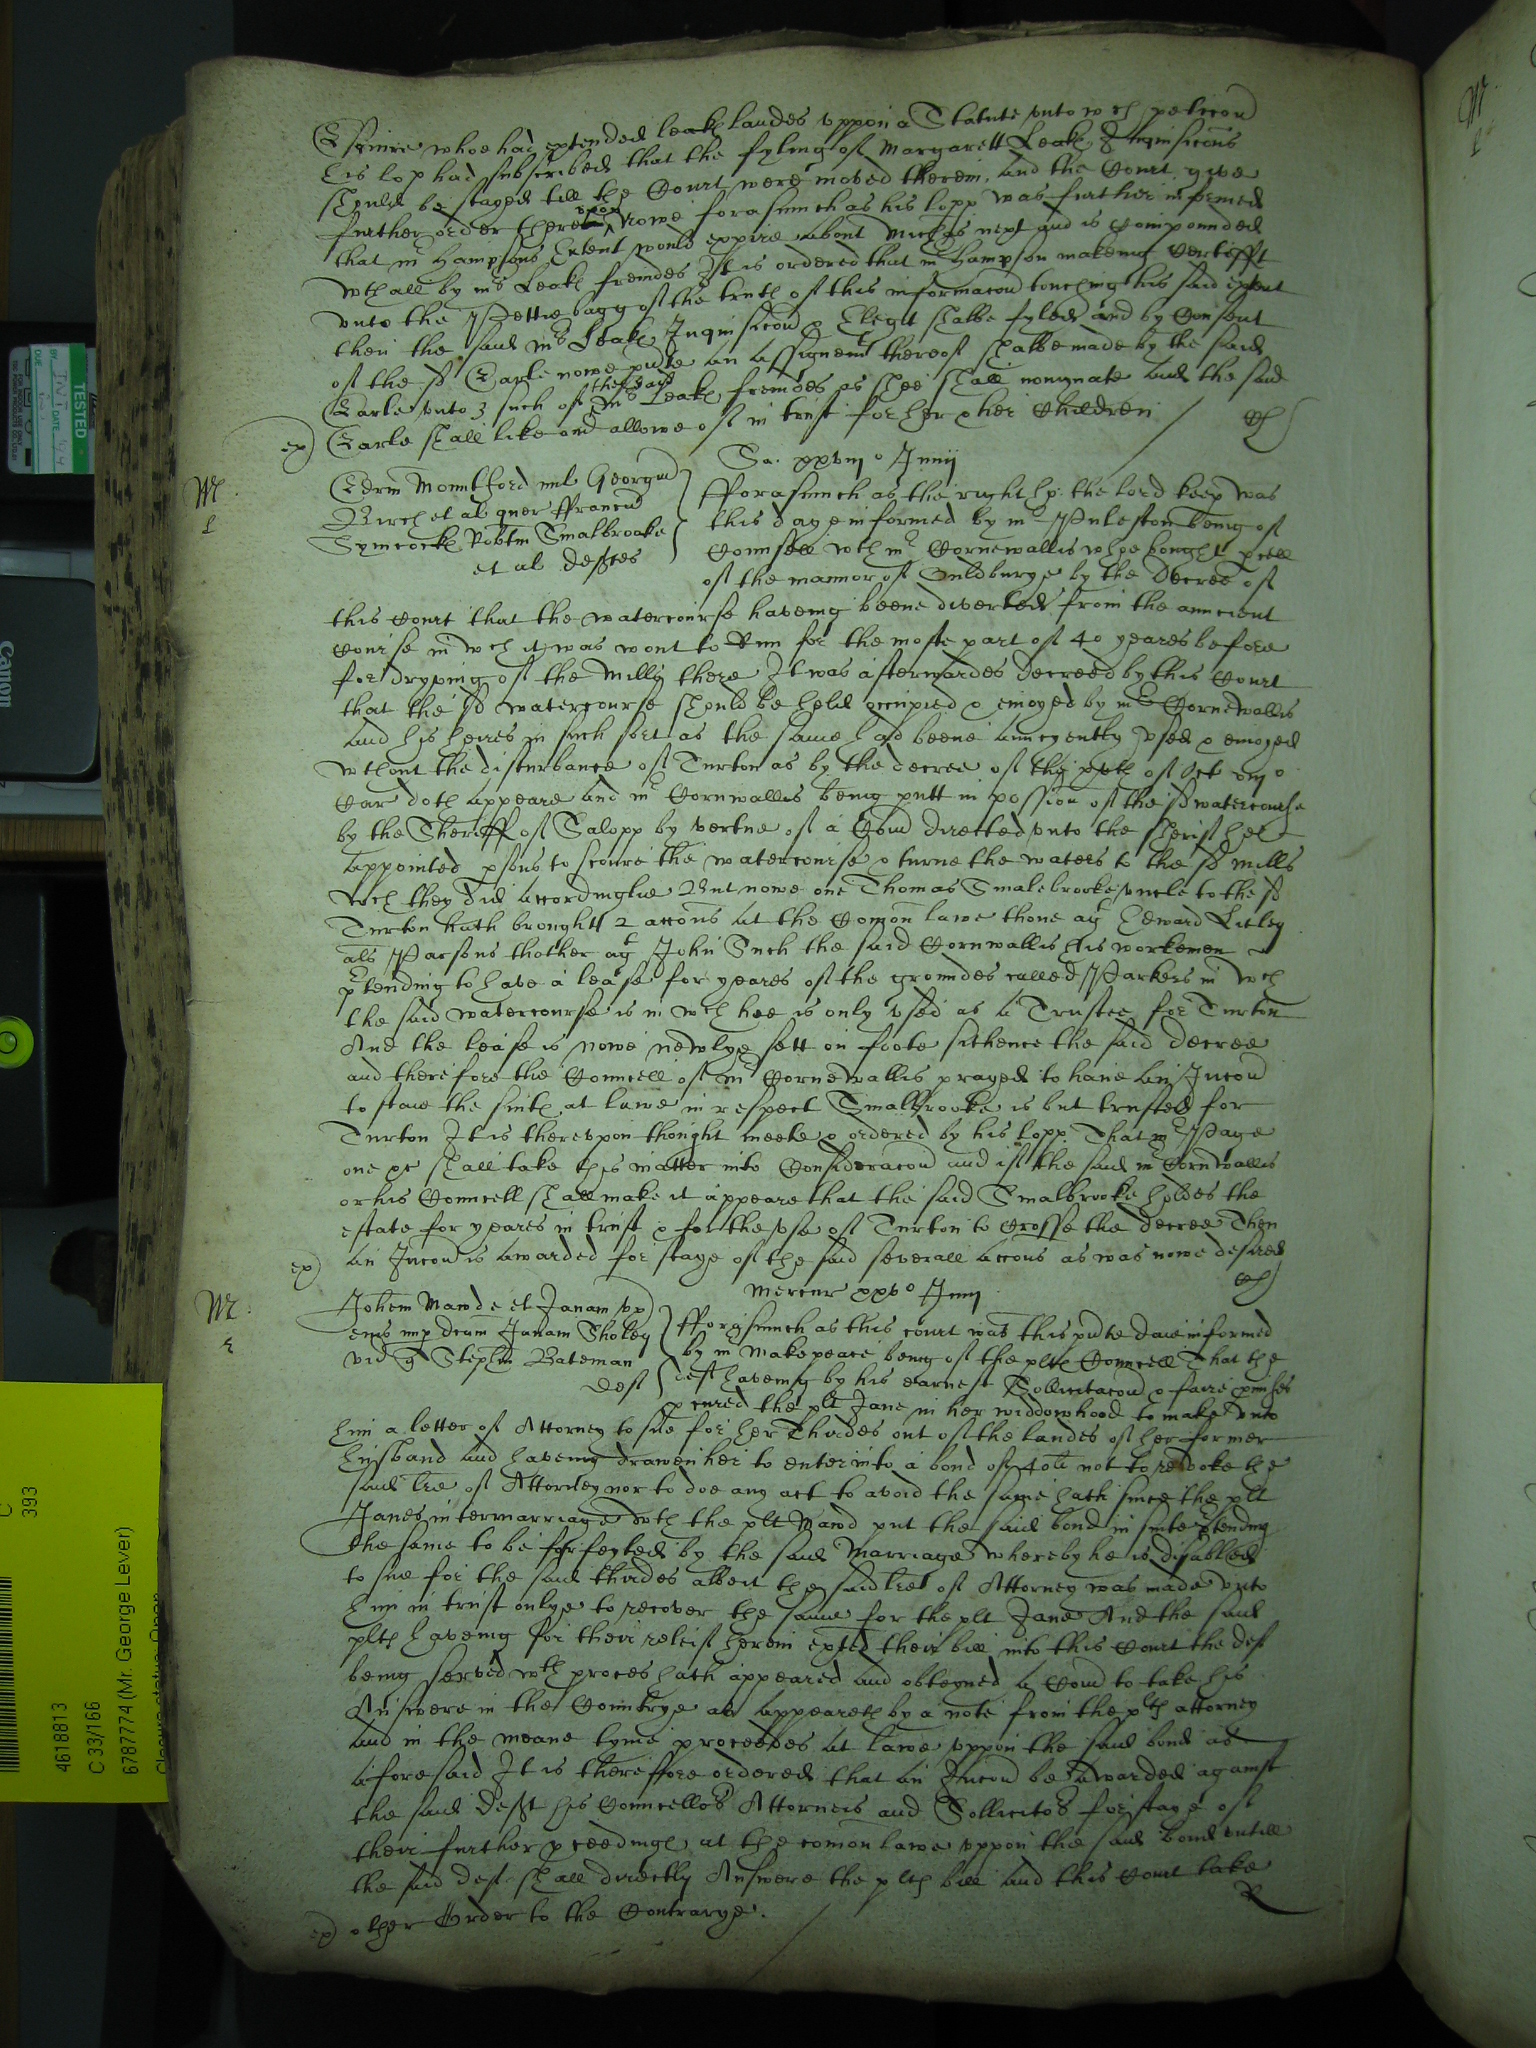 Esquire whoe had extended Leakes landes uppon a Statute unto wch peticon
his lop had subscribed that the fyling of Margarett Leakes Inquisicons
should be stayed till the Court were moved therein, and the Court give
further order thereupon Nowe forasmuch as his lopp was further informed
that mr Hampsons Extent would expire about Michas next and is Compounded
wthall by mrs Leakes freindes It is ordered that mr Hampson makeing Certifft
unto the Pettie bagg of the truth of this informacon touching his said extent
then the said mrs Leakes Inquisicon & Elegit shalbe fyled and by Consent
of the sd Earle nowe pnte an assignemt thereof shalbe made by the said
Earle unto 3 such of the said mrs Leakes freindes as shee shall nominate and the said
Earle shall like and allowe of in trust for her & her Children
ex)
Sa. xxviij o Junij
M
Edrm Mountford mil Georgiu
Birch et al quer ffrancu
Symcocke Robtm Smalbrooke
et al deftes
fforasmuch as the right ho: the lord keep was
this daye informed by mr Puleston being of
Counsell wth mr Cornewallis whoe bought pcell
of the mannor of Ouldburye by the Decree of
this Court that the watercourse haveing beene diverted from the auncient
course in wch it was wont to Run for the moste part of 40 yeares before
for dryping of the Mills there It was afterwardes Decreed by this Court
that the sd watercourse should be held occupied & enioyed by mr Cornewallis
and his heires in such sort as the same had beene auncyently used & enioyed
wthout the disturbance of Turton as by the decree of the xxth of Oct
Car doth appeare and mr Cornwallis being putt in possion of the sd watercourse
by the Sheriff of Salopp by vertue of a Com directed unto the sherif hee
appointed psons to scoure the watercourse & turne the waters to the sd mills
wch they did accordinglie But nowe one Thomas Smalebrooke uncle to the sd
Turton hath brought 2 accons at the Comon lawe thone agt Edward Litley
als Parsons thother agt John Such the said Cornwallis his workemen
ptending to have a lease for yeares of the groundes called Parkers in wch
the said watercourse is in wch hee is only used as a Trustee for Turton
And the lease is nowe newlye sett on foote sithence the said decree
and therefore the Councell of mr Cornewallis prayed to have an Iniucon
to staie the suites at lawe in respect Smallbrooke is but trusted for
Turton It is thereupon thought meete & ordered by his lopp That mr Page
one &c shall take this matter into Consideracon and if the said mr Cornwallis
or his Councell shall make it appeare that the said Smalbrooke holdes the
estate for yeares in trust & for the use of Turton to Crosse the decree Then
an Iniucon is awarded for staye of the said severall accons as was nowe desired
ex)
Mercur xxv o Junij
M
Johem Mawde et Janam ux
eius nup dcam Janam Sholey
vid q Stephn Bateman
deft
fforasmuch as this court was this pnte daie informed
by mr Makepeace being of the plts Councell That the
deft haveing by his earnest Sollicitacon & faire pmises
pcured the plt Jane in her widdowhood to make unto
him a letter of Attorney to sue for her Thirdes out of the landes of her former
husband and haveing drawen her to enter into a bond of 40li not to revoke the
said lre of Attorney nor to doe any act to avoid the same hath since the plt
Janes intermarriage wth the plt Mawd put the said bond in suite ptending
the same to be forfeyted by the said Marriage whereby he is disabled
to sue for the said thirdes albeit the said lre of Attorney was made unto
him in trust onlye to recover the same for the plt Jane And the said
plts haveing for their releif herein exhted their bill into this Court the deft
being served wth proces hath appeared and obteyned a Com to take his
Answere in the Countrye as appeareth by a note from the plts attorney
and in the meane tyme proceedes at lawe uppon the said bond as
aforesaid It is therefore ordered that an Iniucon be awarded against
the said Deft his Councellors Attorneis and Sollicitors for staye of
their further pceedings at the comon lawe uppon the said bond untill
the said deft shall directly Answere the plts bill and this Court take
R
ex) other Order to the Contrarye.
TESTED
BY
DATE
DUE
Canon
C
393
4618813
C 33/166
6787774 (Mr. George Lever)
M